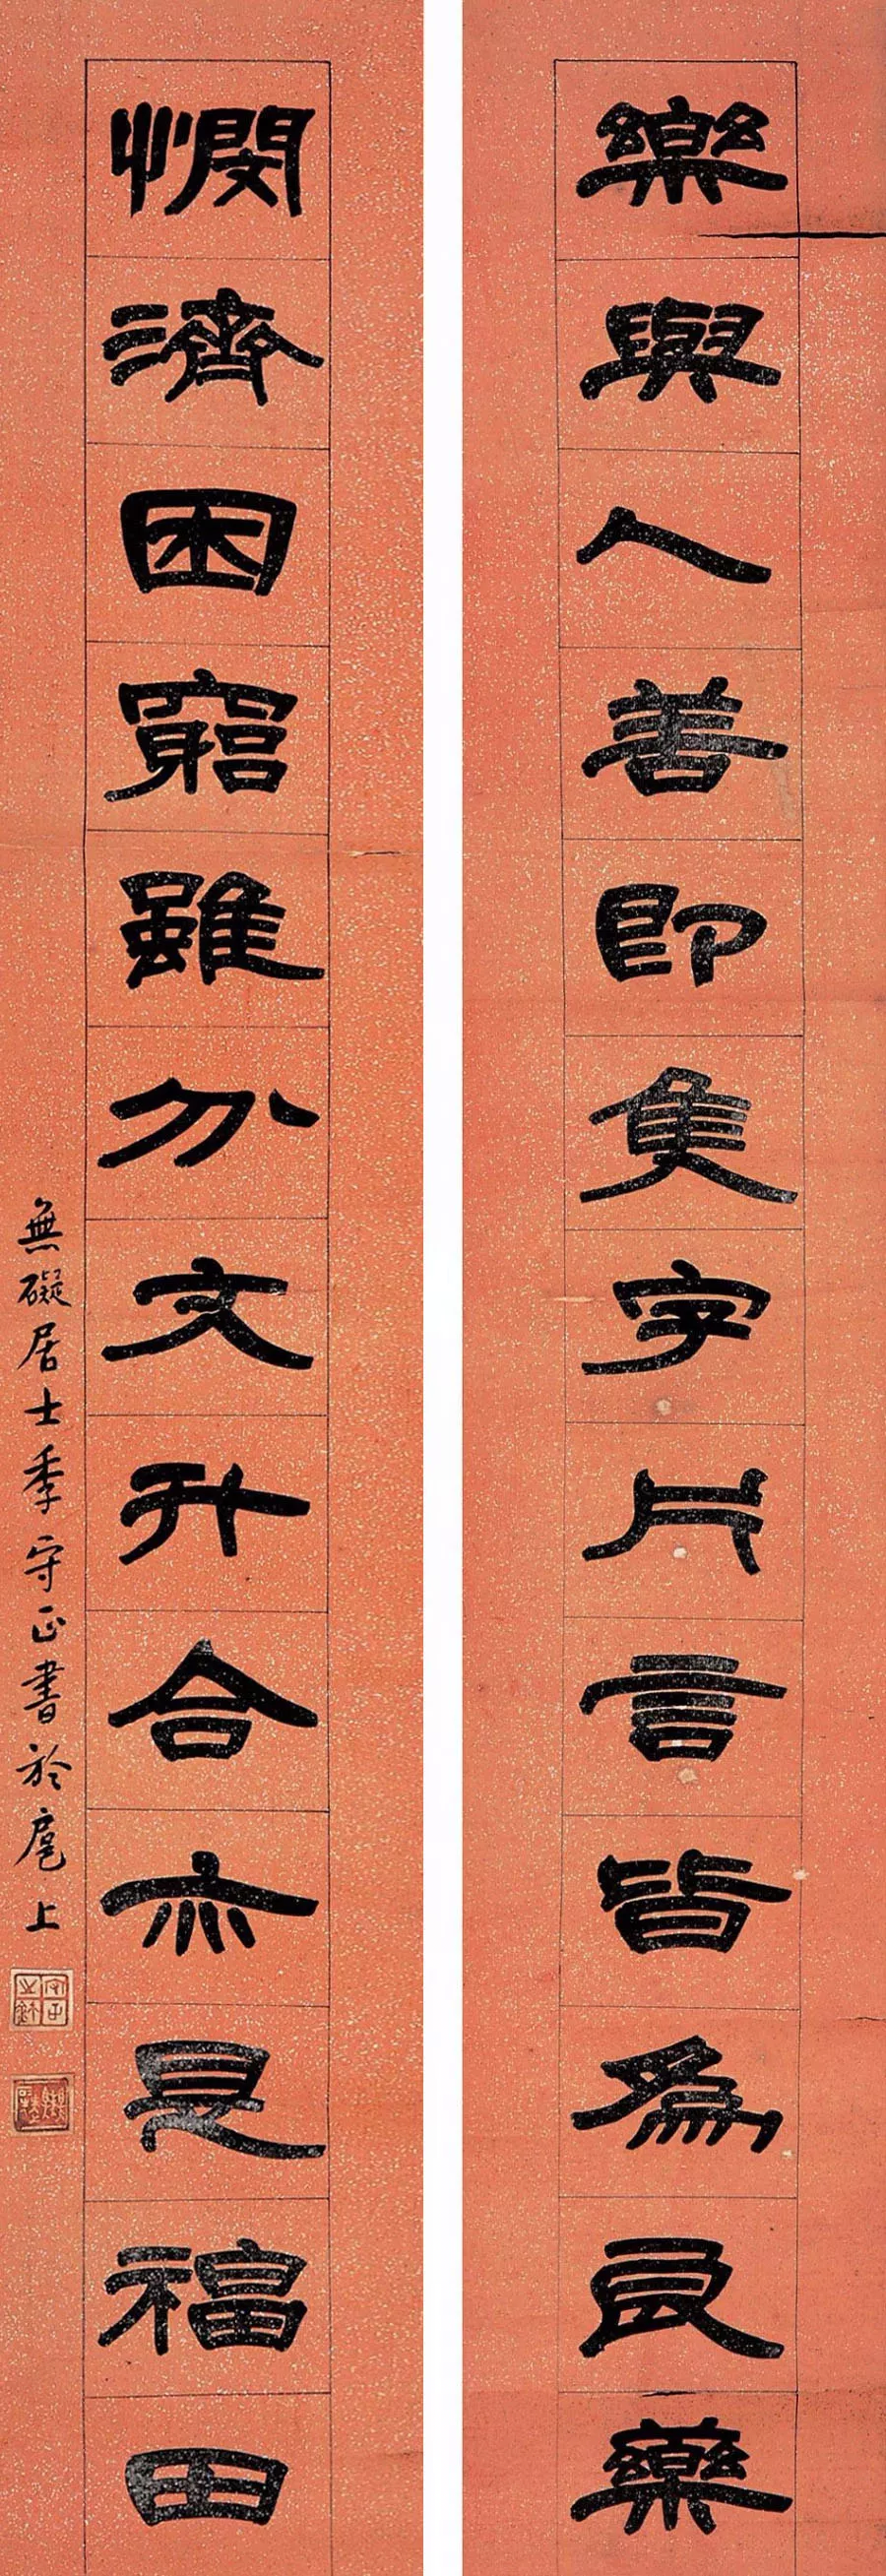 樂與人善即隻字片言皆為良藥
憫濟困窮雖分文升合亦是福田
無礙居士季守正書於扈上
守正之鉨